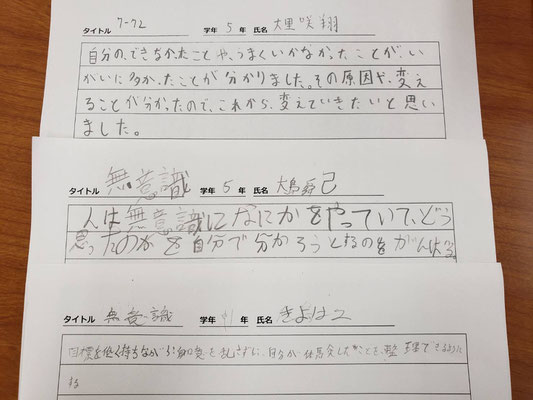 タイトル ワーク2 学年 5 年 氏名 大里咲翔
自分の、できなかったことや、うまくいかなかったことが、い
がいに多かったことが分かりました。その原因や、変え
ることが分かったので、これから、変えていきたいと思い
ました。
タイトル 無意識 学年 5 年 氏名 大島 己
人は無意識になにかをやっていて、どう
思ったのかを自分で分かろうとするのをがんばる。
タイトル 無意識 学年 年 氏名 きよはっ
目標を低く持ちながら 意を乱さずに、自分が体 したことを、整理できるように
する